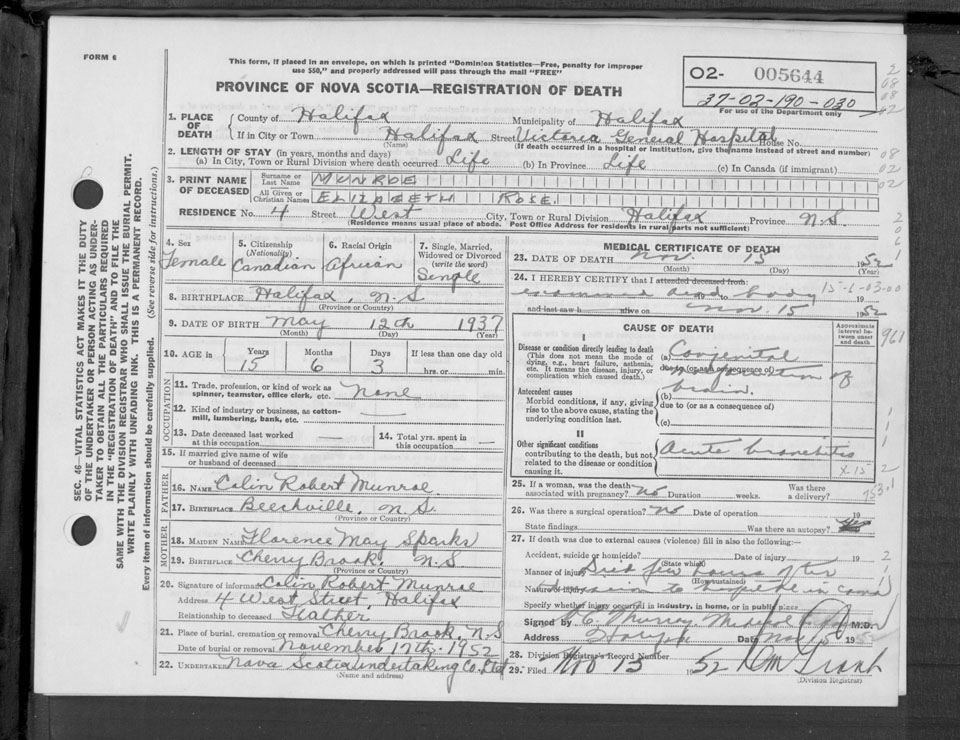 FORM 6
This form, if placed in an envelope, on which is printed "Dominion Statistics—Free, penalty for improper
use $50," and properly addressed will pass through the mail "FREE"
PROVINCE OF NOVA SCOTIA—REGISTRATION OF DEATH
O2- 005644
37-02-190-030
For use of the Department only
1. PLACE OF DEATH
County of Halifax Municipality of Halifax
If in City or Town Halifax Street Victoria General Hospital House No.
(Name) (If death occurred in a hospital or institution, give the name instead of street and number)
2. LENGTH OF STAY (in years, months and days)
(a) In City, Town or Rural Division where death occurred Life (b) In Province Life (c) In Canada (if immigrant)
3. PRINT NAME OF DECEASED
Surname or Last Name MUNROE
All Given or Christian Names ELIZABETH ROSE
RESIDENCE No. 4 Street West City, Town or Rural Division Halifax Province N.S.
(Residence means usual place of abode. Post Office Address for residents in rural parts not sufficient)
4. Sex Female
5. Citizenship (Nationality) Canadian
6. Racial Origin African
7. Single, Married, Widowed or Divorced (write the word) Single
8. BIRTHPLACE Halifax, N.S
(Province or Country)
9. DATE OF BIRTH May 12th 1937
(Month) (Day) (Year)
10. AGE in Years 15 Months 6 Days 3 If less than one day old hrs. or min.
OCCUPATION
11. Trade, profession, or kind of work as spinner, teamster, office clerk, etc. None
12. Kind of industry or business, as cotton-mill, lumbering, bank, etc. —
13. Date deceased last worked at this occupation —
14. Total yrs. spent in this occupation —
15. If married give name of wife or husband of deceased
FATHER
16. NAME Colin Robert Munroe
17. BIRTHPLACE Beechville, N.S.
(Province or Country)
MOTHER
18. MAIDEN NAME Florence May Sparks
19. BIRTHPLACE Cherry Brook, N.S
(Province or Country)
20. Signature of informant Colin Robert Munroe
Address 4 West Street, Halifax
Relationship to deceased Father
21. Place of burial, cremation or removal Cherry Brook, N.S
Date of burial or removal November 17th. 1952
22. UNDERTAKER Nova Scotia undertaking Co. Ltd
(Name and address)
MEDICAL CERTIFICATE OF DEATH
23. DATE OF DEATH Nov. 15th 1952
(Month) (Day) (Year)
24. I HEREBY CERTIFY that I attended deceased from 15-1-03-00
examined dead body to 19
and last saw h alive on Nov. 15 1952
CAUSE OF DEATH
Approximate interval between onset and death
961
I
Disease or condition directly leading to death
(This does not mean the mode of dying, e.g., heart failure, asthenia, etc. It means the disease, injury, or complication which caused death.)
(a) Congenital
due to (or as a consequence of)
of
brain.
Antecedent causes
Morbid conditions, if any, giving rise to the above cause, stating the underlying condition last.
(b)
due to (or as a consequence of)
(c)
II
Other significant conditions
contributing to the death, but not related to the disease or condition causing it.
Acute bronchitis
25. If a woman, was the death associated with pregnancy? No Duration weeks. Was there a delivery?
753.1
26. Was there a surgical operation? No Date of operation 19
State findings Was there an autopsy?
27. If death was due to external causes (violence) fill in also the following:—
Accident, suicide or homicide? Date of injury 19
(State which)
Manner of injury Died few hours after
(How sustained)
Nature of injury admission to hospital in coma
Specify whether injury occurred in industry, in home, or in public place
Signed by Murray Medical M.D.
Address Date Nov 15 1952
28. Division Registrar's Record Number
29. Filed Nov 15 1952
(Division Registrar)
SEC. 46—VITAL STATISTICS ACT MAKES IT THE DUTY
OF THE UNDERTAKER OR PERSON ACTING AS UNDER-
TAKER TO OBTAIN ALL THE PARTICULARS REQUIRED
IN THE "REGISTRATION OF DEATH" AND TO FILE THE
SAME WITH THE DIVISION REGISTRAR WHO SHALL ISSUE THE BURIAL PERMIT.
WRITE PLAINLY WITH UNFADING INK. THIS IS A PERMANENT RECORD.
Every item of information should be carefully supplied. (See reverse side for instructions.)